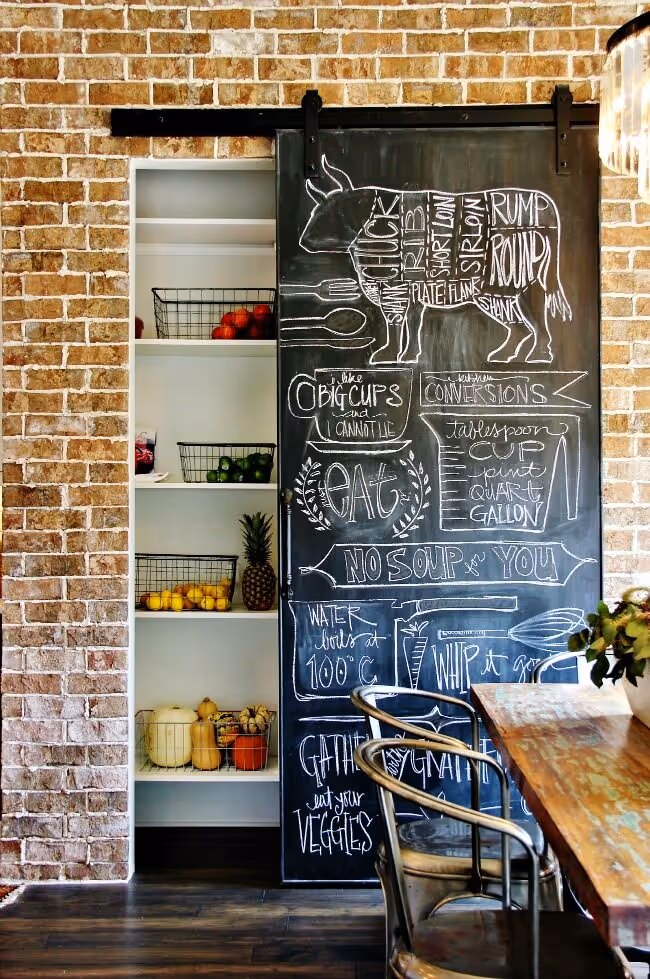 CHUCK RIB SHORT LOIN SIRLOIN RUMP
ROUND
SHANK PLATE FLANK SHANK
I like
BIG CUPS
and
I CANNOT LIE
kitchen
CONVERSIONS
tablespoon
CUP
pint
QUART
GALLON
eat
NO SOUP for YOU
WATER
boils at
100°C
WHIP it go
GATHE
with GRATEF
eat your
VEGGIES